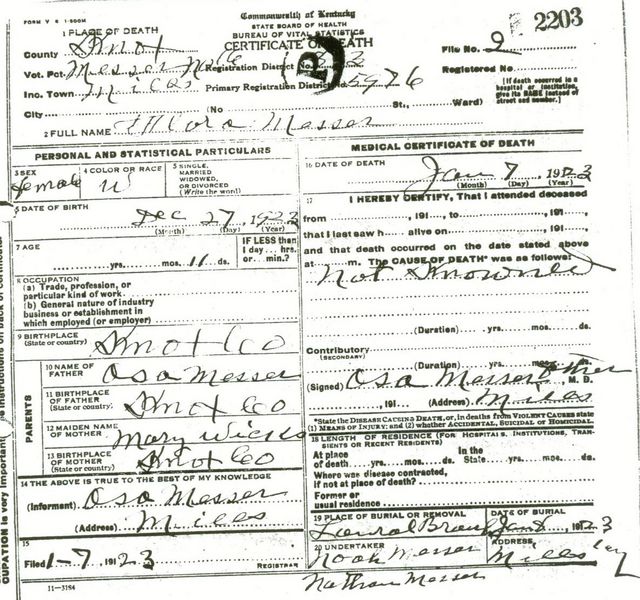 FORM V S 1-500M
Commonwealth of Kentucky
STATE BOARD OF HEALTH
BUREAU OF VITAL STATISTICS
CERTIFICATE OF DEATH
2203
1 PLACE OF DEATH
County Knox
File No. 2
Vot. Pct. Messer Mills Registration District
Registered No.
Inc. Town Mills Primary Registration District No. 5976
[If death occurred in a hospital or institution, give its NAME instead of street and number.]
City (No St., Ward)
2 FULL NAME Messer
PERSONAL AND STATISTICAL PARTICULARS
3 SEX female
4 COLOR OR RACE W
5 SINGLE, MARRIED WIDOWED, OR DIVORCED (Write the word)
6 DATE OF BIRTH
Dec 27, 1922
(Month) (Day) (Year)
7 AGE
yrs. mos. 11 ds.
IF LESS than 1 day hrs. or min.?
8 OCCUPATION
(a) Trade, profession, or particular kind of work
(b) General nature of industry business or establishment in which employed (or employer)
9 BIRTHPLACE (State or country) Knox Co
PARENTS
10 NAME OF FATHER Osa Messer
11 BIRTHPLACE OF FATHER (State or country) Knox Co
12 MAIDEN NAME OF MOTHER Mary
13 BIRTHPLACE OF MOTHER (State or country) Knox Co
14 THE ABOVE IS TRUE TO THE BEST OF MY KNOWLEDGE
(Informant) Osa Messer
(Address) Mills
15
Filed 1-7 1923
REGISTRAR
11-3184
MEDICAL CERTIFICATE OF DEATH
16 DATE OF DEATH
Jan 7, 1923
(Month) (Day) (Year)
17 I HEREBY CERTIFY, That I attended deceased
from , 191 , to , 191 ,
that I last saw h alive on , 191 ,
and that death occurred on the date stated above
at m. The CAUSE OF DEATH* was as follows:
Not Knowned
(Duration) yrs. mos. ds.
Contributory
(SECONDARY)
(Duration) yrs. mos. ds.
(Signed) Osa Messer father M. D.
, 191 (Address) Mills
*State the DISEASE CAUSING DEATH, or, in deaths from VIOLENT CAUSES state (1) MEANS OF INJURY; and (2) whether ACCIDENTAL, SUICIDAL or HOMICIDAL.
18 LENGTH OF RESIDENCE (FOR HOSPITALS, INSTITUTIONS, TRANSIENTS OR RECENT RESIDENTS)
At place of death yrs. mos. ds. In the State yrs. mos. ds.
Where was disease contracted, if not at place of death?
Former or usual residence
19 PLACE OF BURIAL OR REMOVAL
DATE OF BURIAL
Jan 8, 1923
20 UNDERTAKER
ADDRESS
Noah Messer Mills Ky
Nathan Messer